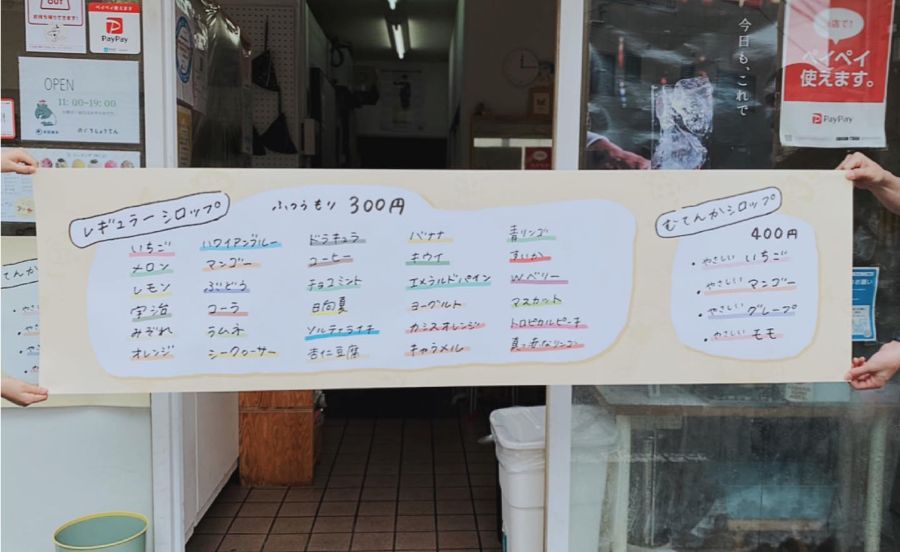 お持ち帰りできます!
ペイペイ使えます
PayPay
OPEN
11:00~19:00
のぐちしょうてん
今日も、これで
ペイペイ
使えます。
PayPay
レギュラーシロップ
ふつうもり 300円
いちご
メロン
レモン
宇治
みぞれ
オレンジ
ハワイアンブルー
マンゴー
ぶどう
コーラ
ラムネ
シークヮーサー
ドラキュラ
コーヒー
チョコミント
日向夏
ソルティライチ
杏仁豆腐
バナナ
キウイ
エメラルドパイン
ヨーグルト
カシスオレンジ
キャラメル
青リンゴ
すいか
W.ベリー
マスカット
トロピカルピーチ
真っ赤なリンゴ
むてんかシロップ
400円
・やさしい いちご
・やさしい マンゴー
・やさしい グレープ
・やさしい モモ